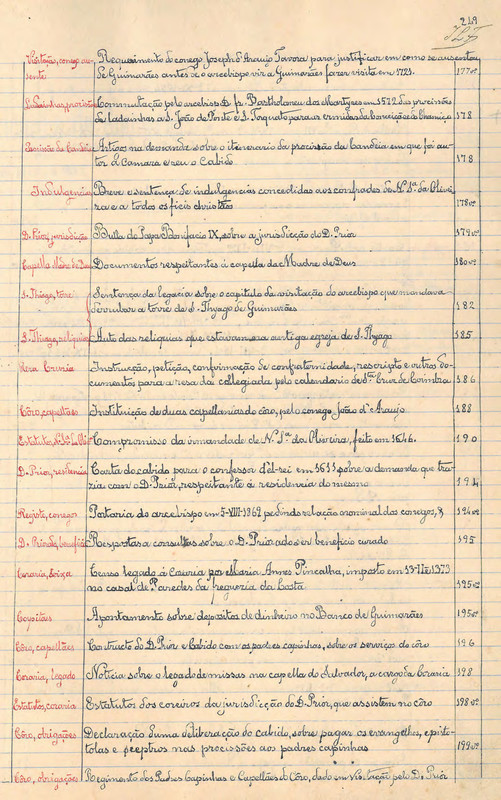 219
Visitação, conego au-
sente
Requerimento do conego Joseph d'Araujo Tavora para justificar em como se ausentou
de Guimarães antes de o arcebispo vir a Guimarães fazer visita em 1721.
177vº
Ladainhas, procissão
Commutação pelo arcebispo D. fr. Bartholomeu dos Martyres em 1572 das procissões
de ladainhas a S. João de Ponte e S. Torquato para as ermidas da
178
Procissão da Candeia
Artigos na demanda sobre o itenerario da procissão da Candeia em que foi au-
tor a Camara e reu o Cabido
178
Indulgencia
Breve e sentença de indulgencias concedidas aos confrades de N. Sª. da Olivei-
ra e a todos os fieis christãos
178vº
D. Prior, jurisdicção
Bulla do Papa Bonifacio IX, sobre a jurisdicção do D. Prior
179vº
Capella Madre de Deus
Documentos respeitantes á capella da Madre de Deus
180vº
S. Thiago, torre
Sentença da legacia sobre o capitulo da visitação do arcebispo que mandava
derrubar a torre de S. Thyago de Guimarães
182
S. Thiago, reliquias
Auto das reliquias que estavam na antiga egreja de S. Thyago
185
Instrucção, petição, confirmação de confraternidade, rescripto e outros do-
cumentos para a resa da collegiada pelo calendario de Stª. Cruz de Coimbra
186
Côro, capellães
Instituição de duas capellanias do côro, pelo conego João d'Araujo
188
Estatutos,
Compromisso da irmandade de N. Sª. da Oliveira, feito em 1646.
190
D. Prior, residencia
Carta do cabido para o confessor d'el-rei em 1611 sobre a demanda que tra-
zia com o D. Prior, respeitante á residencia do mesmo
194
Registo, conegos
Portaria do arcebispo em 5-VIII-1862 pedindo relação nominal dos conegos, &
194vº
D. Priorado, beneficio
Respostas a consultas sobre o D. Priorado ser beneficio curado
195
Coraria,
Censo legado á Coraria por Maria Annes Pincalha, imposto em 1373
no casal de Paredes da freguezia da Costa
195vº
Apontamento sobre depositos de dinheiro no Banco de Guimarães
195vº
Côro, capellães
Contracto do D. Prior e Cabido com os padres capinhas, sobre os serviços do côro
196
Coraria, legado
Noticia sobre o legado de missas na capella do Salvador, a cargo da Coraria
198
Estatutos, coraria
Estatutos dos coreiros da jurisdicção do D. Prior, que assistem no côro
198vº
Côro, obrigações
Declaração duma deliberação do cabido, sobre pagar os evangelhos, episto-
tolas e sceptros nas procissões aos padres capinhas
199vº
Côro, obrigações
Regimento dos Padres Capinhas e Capellães do Côro, dado em Visitação pelo D. Prior